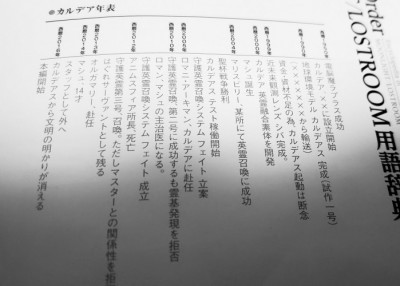 Order
LOSTROOM 用語辞典
●カルデア年表
ラプラス成功
××××に設立開始
地球環境モデル カルデアス 完成(試作一号)
資金・資材不足の為、カルデアス起動は断念
近未来観測レンズ・シバ完成。
カルデア 英霊融合素体を開発
西暦2000年
マシュ誕生
マリスビリー、某所にて英霊召喚に成功
西暦2004年
聖杯戦争勝利
カルデアス テスト稼働開始
守護英霊召喚システム フェイト 立案
西暦2005年
ロマニ・アーキマン、カルデアに赴任
守護英霊召喚、第二号に成功するも霊基発現を拒否
ロマニ、マシュの主治医になる。
守護英霊召喚システム フェイト 成立
西暦2012年
アニムスフィア所長、死亡
守護英霊第三号、召喚。ただしマスターとの関係性を拒
はぐれサーヴァントとして残る
西暦2013年
オルガマリー、赴任
西暦2014年
マシュ 14才
スタッフとして外へ
西暦2016年
カルデアスから文明の明かりが消える
本編開始